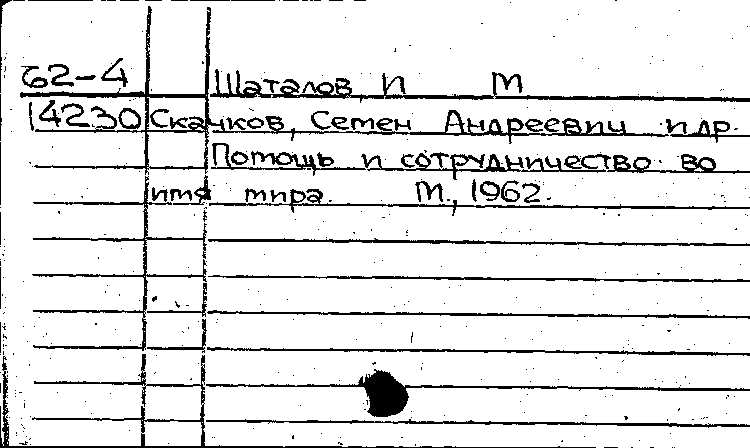 62-4 Шаталов, И М
14230 Скачков, Семен Андреевич и др.
Помощь и сотрудничество во
имя мира. М., 1962.